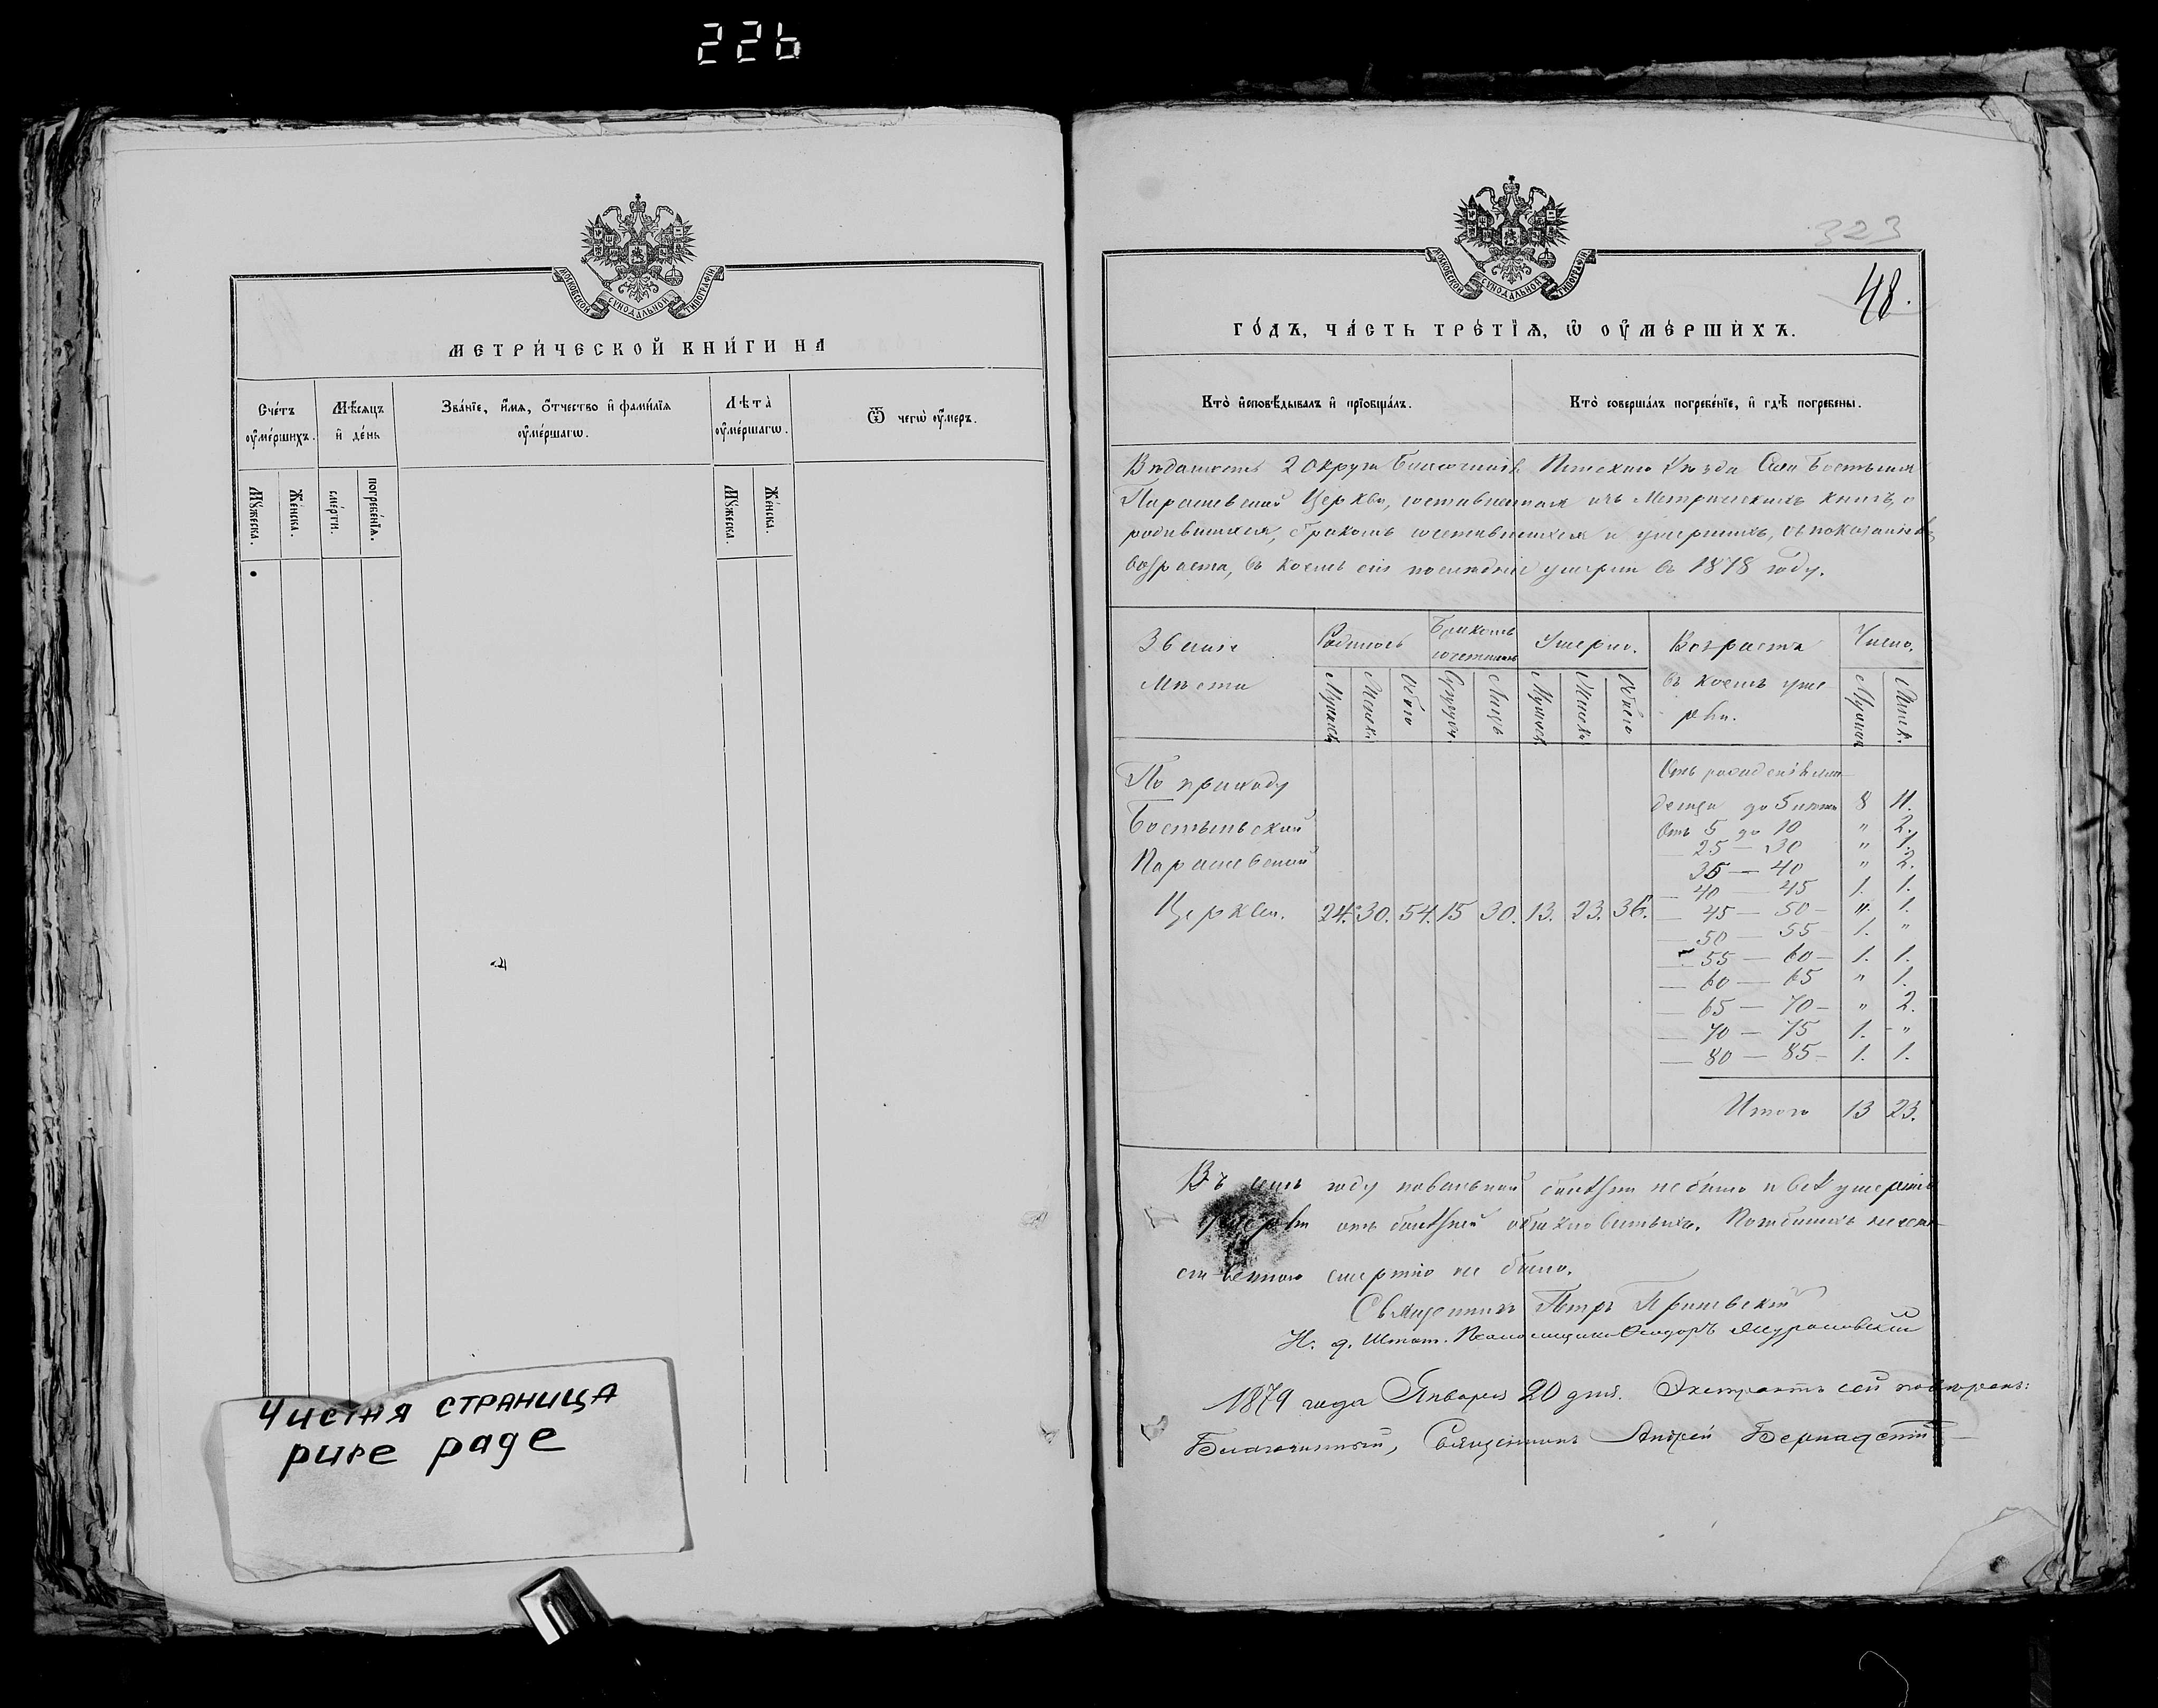 226
МОСКОВСКОЙ СѴНОДАЛЬНОЙ ТИПОГРАФІИ
МЕТРИ́ЧЕСКОЙ КНИ́ГИ НА
Счéтъ ᲂу҆мéршихъ.
Мѣ́сяцъ и҆ дéнь
Звáнїе, и҆́мя, ѻ҆́тчество и҆ фами́лїя ᲂу҆мéршагѡ.
Лѣ́та ᲂу҆мéршагѡ.
Ѿ чегѡ̀ ᲂу҆́меръ.
Мꙋ́жеска.
Жéнска.
смéрти.
погребéнїѧ.
Мꙋ́жеска.
Жéнска.
Чистня страница
pure page
323
48.
МОСКОВСКОЙ СѴНОДАЛЬНОЙ ТИПОГРАФІИ
ГО́ДЪ, ЧА́СТЬ ТРЕ́ТЇѦ, Ѡ҆ ОУ҆МЕ́РШИХЪ.
Кто̀ и҆сповѣ́дывалъ и҆ прїобщáлъ.
Кто̀ совершáлъ погребéнїе, и҆ гдѣ̀ погребены.
Вѣдомость 2 округа Пинскаго Уѣзда
Церкви, составленная изъ Метрическихъ книгъ, о
родившихся, бракомъ сочетавшихся и умершихъ, съ показаніемъ
возраста, въ коемъ сіи послѣдніе умерли въ 1878 году.
Званіе
Мѣста
Родилось
Бракомъ сочеталось
Умерло.
Возраста
въ коемъ умер-
ли.
Число.
Мужеск.
Женск.
Обоего
Супруж.
Лицъ
Мужеск.
Женск.
Обоего
Мужеск.
Женск.
По приходу
Церкви. 24. 30. 54. 15 30. 13. 23. 36.
Отъ рожденія
до 5 лѣтъ 8 11.
Отъ 5 до 10 " 2.
25 — 30 " 1.
35 — 40 " 2.
— 40 — 45 1. 1.
— 45 — 50 — " 1.
— 50 — 55 1. "
— 55 — 60 — 1. 1.
— 60 — 65 " 1.
— 65 — 70 — " 2.
— 70 — 75 1. "
— 80 — 85 — 1. 1.
Итого 13 23.
Въ семъ году повальной болѣзни не было и всѣ умершіе
умерли отъ болѣзней обыкновенныхъ. Погибшихъ неесте-
ственною смертію не было.
Священникъ Петръ
И. д. Штат. Псаломщика Ѳеодоръ
1879 года Января 20 дня. Экстрактъ сей повѣрялъ:
Благочинный, Священникъ Андрей